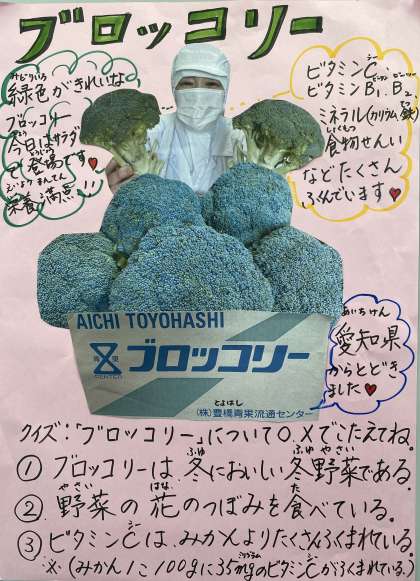 ブロッコリー
みどりいろ
緑色がきれいな
ブロッコリー
今日はサラダ
とうじょう
で登場です♥
えいようまんてん
栄養満点!!
ビタミンC、
ビタミンB1、B2、
ミネラル(カリウム、鉄)
しょくもつ
食物せんい
などたくさん
ふくんでいます♥
AICHI TOYOHASHI
ブロッコリー
とよはし
(株)豊橋青果流通センター
あいちけん
愛知県
からとどき
ました♥
クイズ:「ブロッコリー」について○、×でこたえてね。
ふゆ ふゆやさい
①ブロッコリーは冬においしい冬野菜である。
やさい はな た
②野菜の花のつぼみを食べている。
③ビタミンCは、みかんよりたくさんふくまれている
※(みかん1こ100gに35mgのビタミンCがふくまれている。)